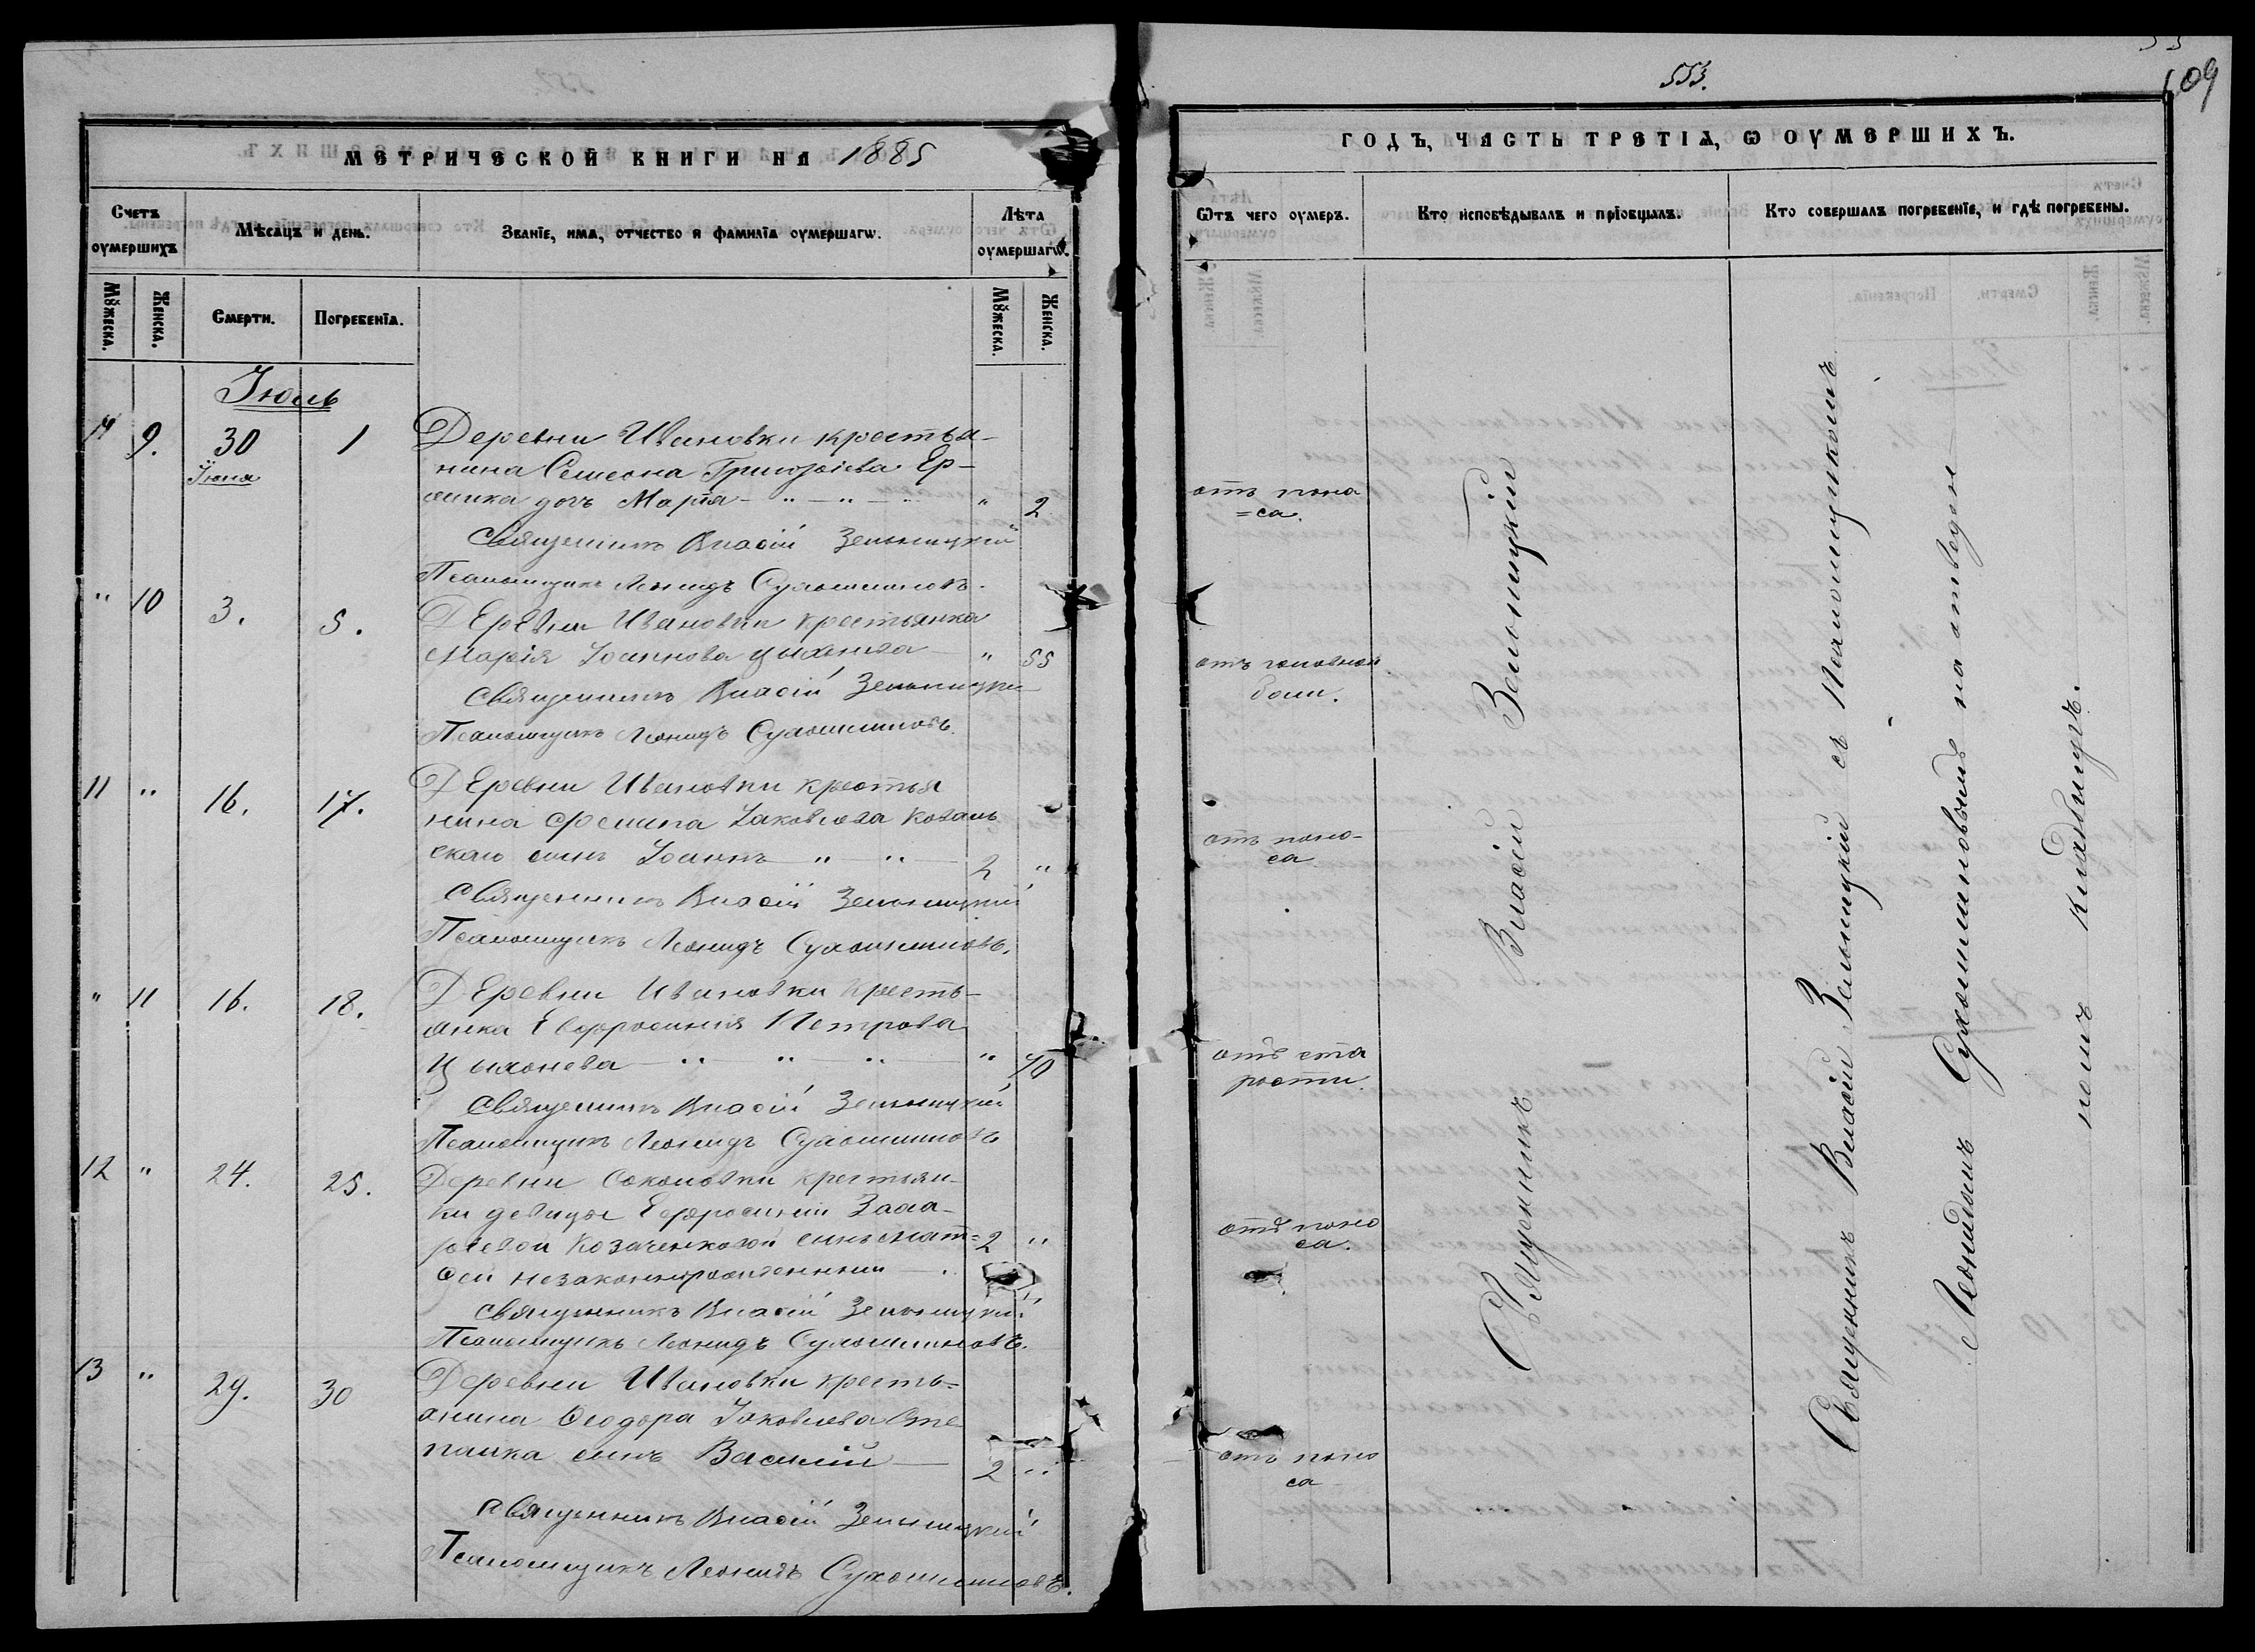 553.
109
МЕТРИЧЕСКОЙ КНИГИ НА 1885
Счетъ оумершихъ
Мѣсяцъ и день.
Званїе, имѧ, отчество и фамилїѧ оумершагѡ.
Лѣта оумершагѡ.
Мꙋжеска.
Женска.
Смерти.
Погребенїѧ.
Мꙋжеска.
Женска.
Іюль
" 9. 30 Іюня 1
Деревни Ивановки крестья-
нина Симеона Григоріева Ер-
дочь Марія - " - " - " 2
Священникъ Власій Зельницкій
Псаломщикъ Леонидъ Сухомлиновъ.
" 10 3. 5.
Деревни Ивановки крестьянка
Марія Іоаннова Цыхонева " 55
Священникъ Власій Зельницкій
Псаломщикъ Леонидъ Сухомлиновъ.
11 " 16. 17.
Деревни Ивановки крестья
нина Іаковлева Коваль
скаго сынъ Іоаннъ " " 2 "
Священникъ Власій Зельницкій
Псаломщикъ Леонидъ Сухомлиновъ.
" 11 16. 18.
Деревни Ивановки кресть-
янка Евфросинія Петрова
Цыхонева " " " " 70
Священникъ Власій Зельницкій
Псаломщикъ Леонидъ Сухомлиновъ
12 " 24. 25.
Деревни Соколовки крестьян-
ки девицы Ефросиніи Заха-
ріевой Козаченковой сынъ Мат= 2 "
ѳей незаконнорожденный
Священникъ Власій Зельницкій
Псаломщикъ Леонидъ Сухомлиновъ.
13 " 29. 30
Деревни Ивановки кресть=
янина Ѳеодора Іаковлева Сте
панка сынъ Василій 2 "
Священникъ Власій Зельницкій
Псаломщикъ Леонидъ Сухомлиновъ.
ГОДЪ, ЧАСТЬ ТРЕТІѦ, Ѡ ОУМЕРШИХЪ.
Ѿтъ чего оумеръ.
Кто исповѣдывалъ и прїовщалъ.
Кто совершалъ погребенїе, и гдѣ погребены.
отъ поно
=са.
отъ головной
боли.
отъ поно-
са.
отъ ста
рости.
отъ поно
са.
отъ поно
са
Священникъ Власій Зельницкій
Священникъ Власій Зельницкій съ Псаломщикомъ
Леонидомъ Сухомлиновымъ на отведен
номъ кладбищѣ.